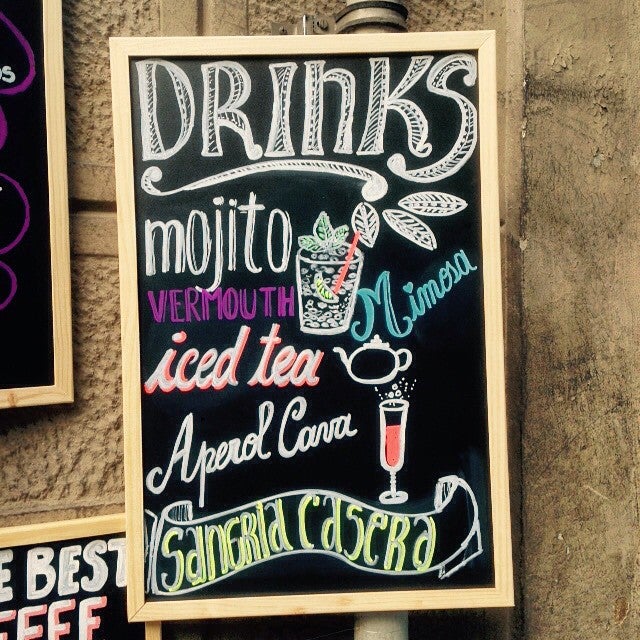 DRInKS
mojito
VERMOUTH
Mimosa
iced tea
Aperol Cava
SanGRIa CaSERa
E BEST
FFEE